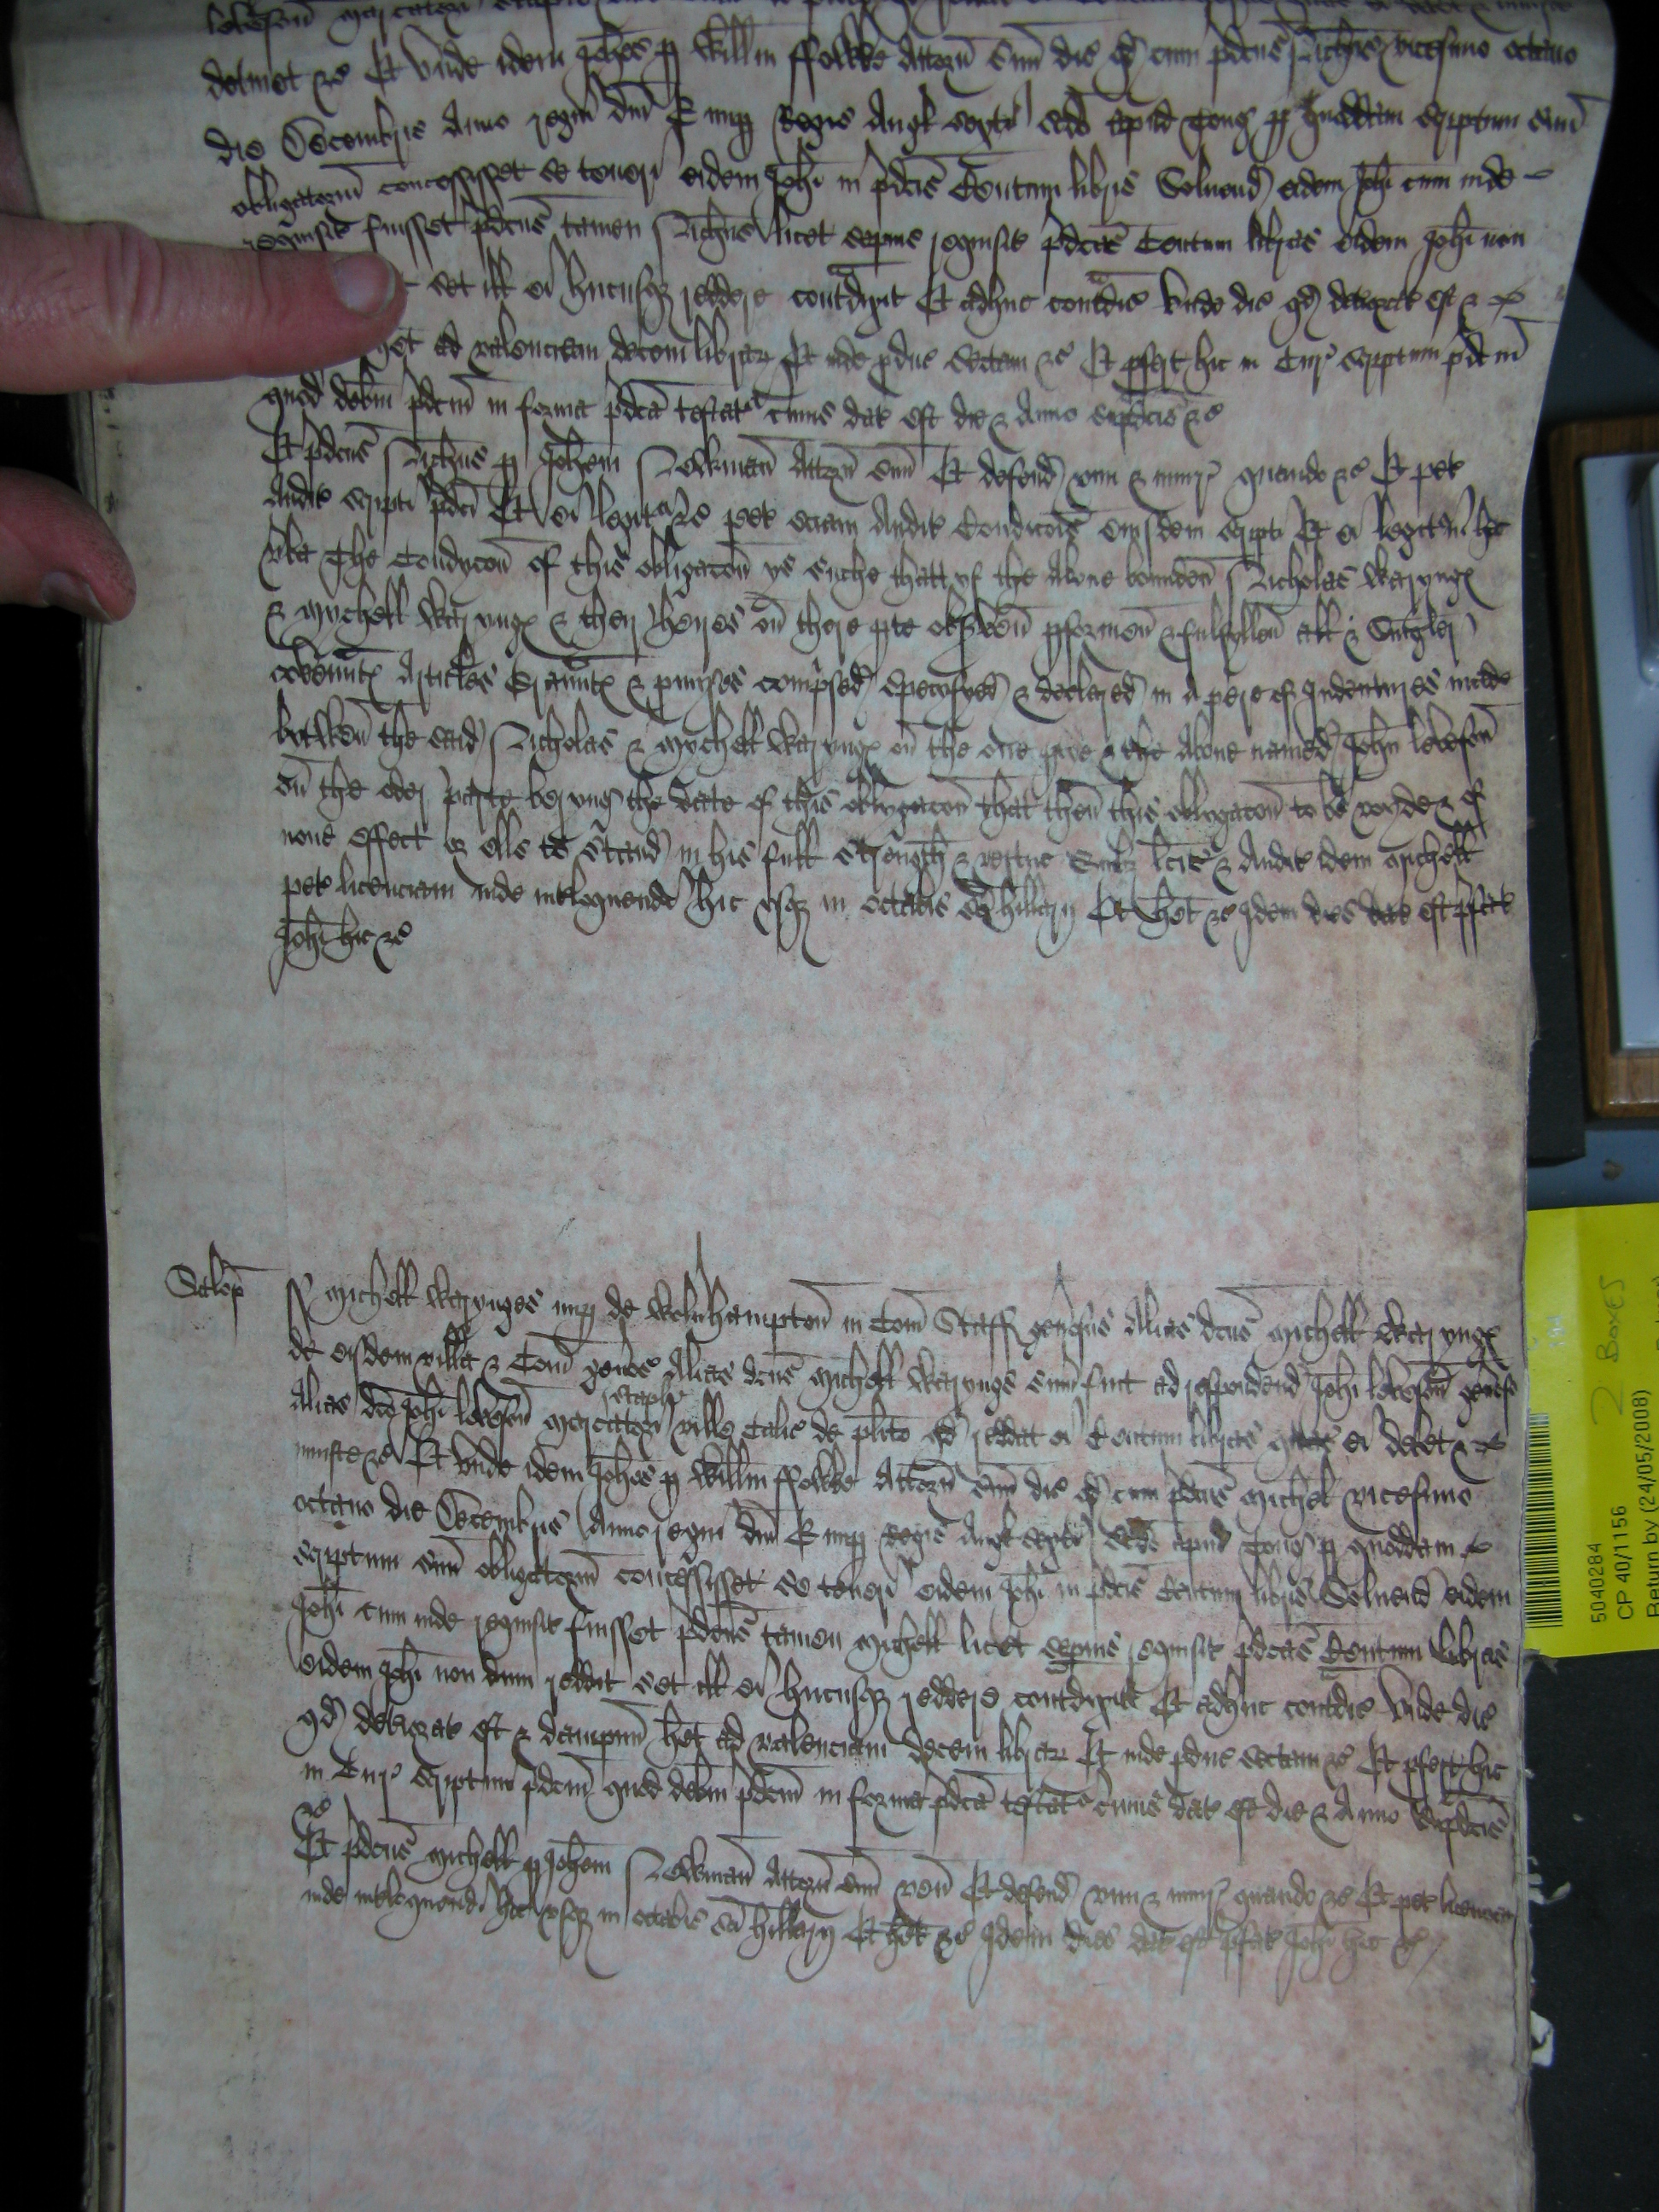 detinet &c Et unde idem Johes p Willm ffolkke Attorn suu dic qd cum pdcus Nichus vicesimo octavo
die Decembris Anno regni dni H nup Regis Angl septi apud Tong p quoddam scriptum suu
obligatoriu concessisset se teneri eidem Johi in pdcis Centum libris Solvend eidem Johi cum inde
requisit fuisset pdcus tamen Nichus licet sepius requisit pdcas Centum libras eidem Johi non
set ill ei hucusq reddere contdixit Et adhuc contdic unde dic qd deteriorat est &
het ad valenciam decem librar Et inde pduc sectam &c Et pfert hic in Cur scriptum pdcm
quod debm pdcm in forma pdca testat cuius dat est die & Anno supdcis &c
Et pdcus Nichus p Johem Newman Attorn suu Et defend vim & iniur quando &c Et pet
Audit scripti pdci Et ei legit &c pet eciam Audit Condicois eiusdem scripti Et ei legit in hec
vba The Condycon of this obligacon ys suche thatt yf the Above bounden Nicholas Warynge
& Mychell Warynge & ther heyres on there pte observen pformen & fulfyllen all & Singler
covennte Articles Graunte & pmyses compsed specyfyed & declared in A pere of Indentures made
betwen the said Nicholas & Mychell Warynge on the one pte & the Above named John leveson
on the oder parte beryng the date of this oblygacon that then this oblygacon to be voyde & of
none effect or elle to stand in his full strenght & vertue Quibz lcis & Audit idem Michell
pet licenciam inde intloquendi hic usq in octabis sci hillarij Et het &c Idem dies dat est pfat
Johi hic &c
Salop
ss Michell Warynges nup de Wolv'hampton in Com Staff genosus Alias dcus Michell Warynge
de eisdem villa & Com genos Alias dcus Michell Warynge sum fuit ad respondend Johi leveson genoso
Alias dco Johi leveson mercatori stapule ville Calis de plito qd reddat ei Centum libras quas ei debet &
iniuste &c Et unde idem Johes p Willm ffolkke Attorn suu dic qd cum pdcus Michel vicesimo
octavo die Decembris Anno regni dni H nup Regis Angl septi apud Tong p quoddam
scriptum suu obligatoriu concessisset se teneri eidem Johi in pdcis Centum libris Solvend eidem
Johi cum inde requisit fuisset pdcus tamen Michell licet sepius requisit pdcas Centum libras
eidem Johi non dum reddit set ill ei hucusq reddere contdixit Et adhuc contdic unde dic
qd deteriorat est & dampnu het ad valenciam decem librar Et inde pduc sectam &c Et pfert hic
in Cur scriptum pdcm quod debm pdcm in forma pdca testat cuius dat est die & Anno supdcis
&c
Et pdcus Michell p Johem Newman Attorn suu ven Et defend vim & iniur quando &c Et pet licenciam
inde intloquendi hic usq in octabis sci hillarij Et het &c Idem dies dat est pfat Johi hic &c
5040284
CP 40/1156
Return by (24/05/2008)
2 Boxes